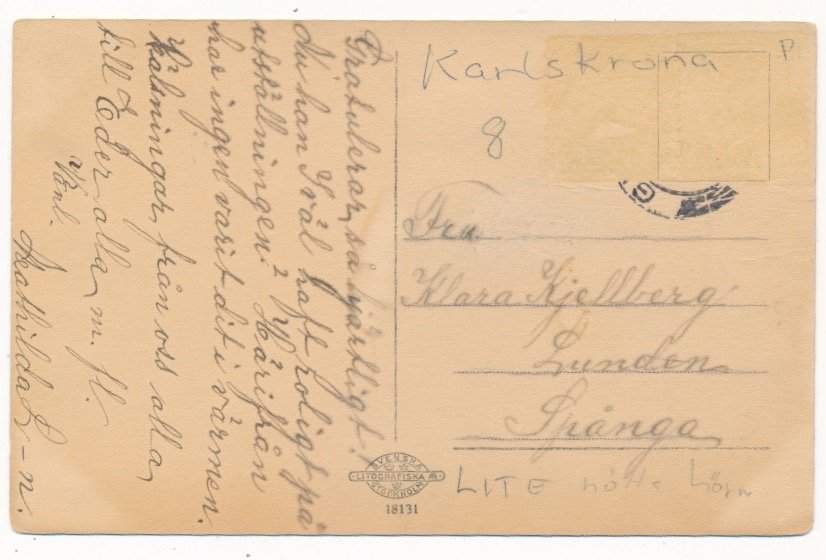 Gratulerar, så hjärtligt!
Nu han I väl haft roligt på
utställningen? Härifrån
har ingen varit dit i värmen.
Hälsningar från oss alla
till Eder alla m. fl.
Vänl.
Mathilda L-n.
Karlskrona
P
8
G
Fru
Klara Kjellberg
Lunden
Spånga
SVENSKA
LITOGRAFISKA AB
STOCKHOLM
18131
LITE nötta hörn